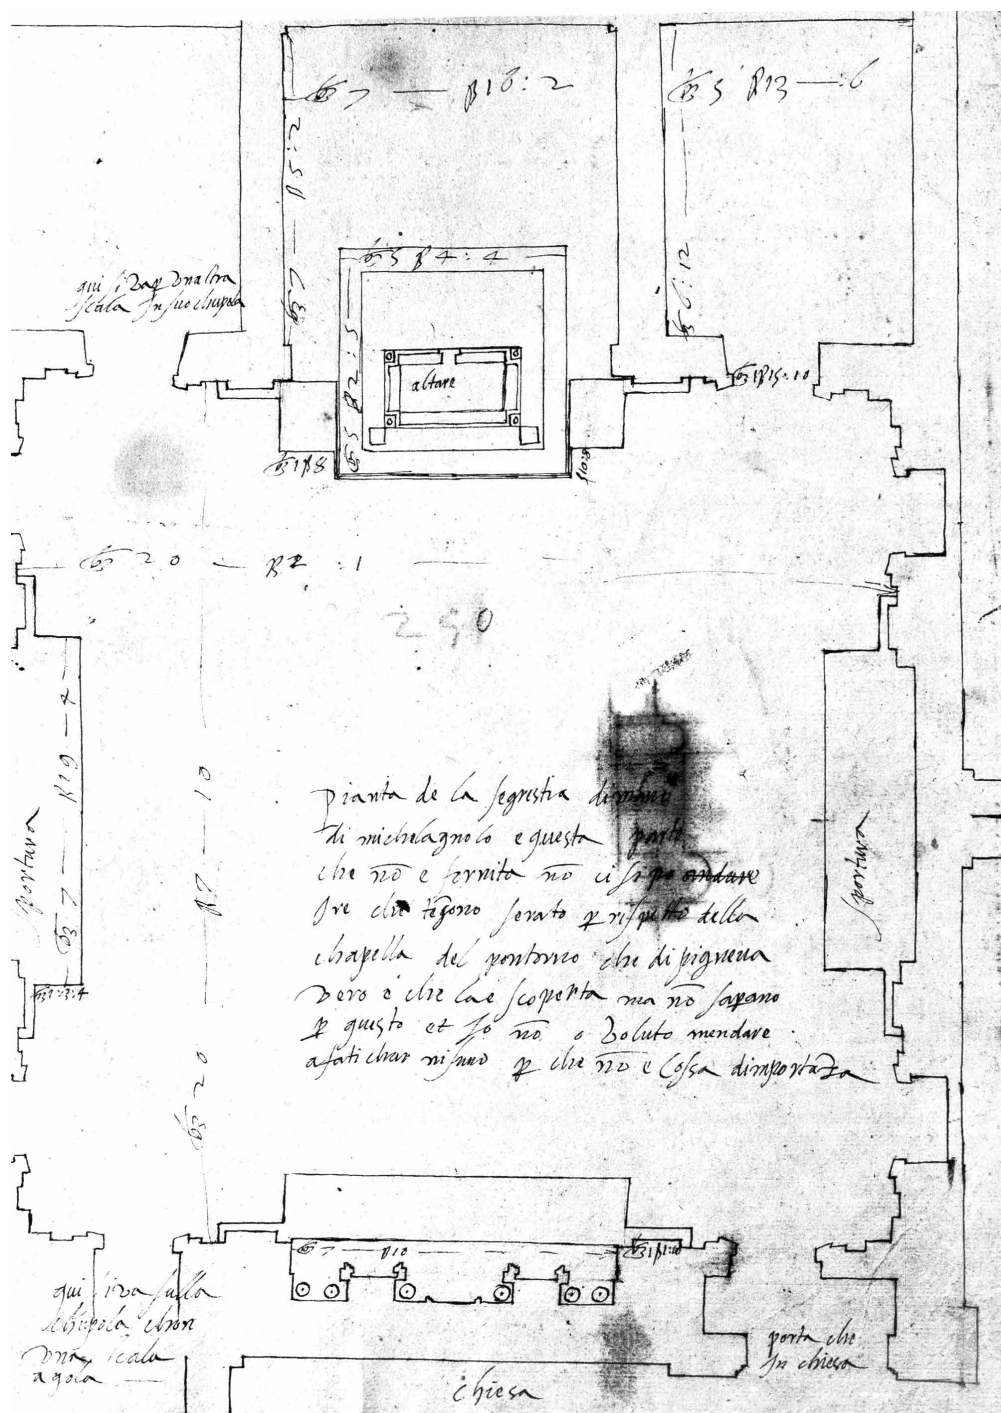 7 — β16 : 2
5 β13 — :6
7 — β5:2
6:12
qui si va p una altra
scala in suo chupola
5 β4 : 4
5 β2 : 5
altare
1β15:10
1β8
20 — β2 :1
250
7 — β19 — 4
β7 — 10
20
sportura
sportura
pianta de la segrestia
di michelagnolo e questa parte
che nō e fornita nō ci si po andare
che tēgono serato p rispetto della
chapella del pontormo che dipigneva
vero e che la e scoperta ma nō sapano
p questo et io nō o voluto mendare
afatichar nisuno p che nō e cossa dimportāza
7 — β10
qui si va sulla
chupola chon
una scala
porta che
in chiesa
chiesa